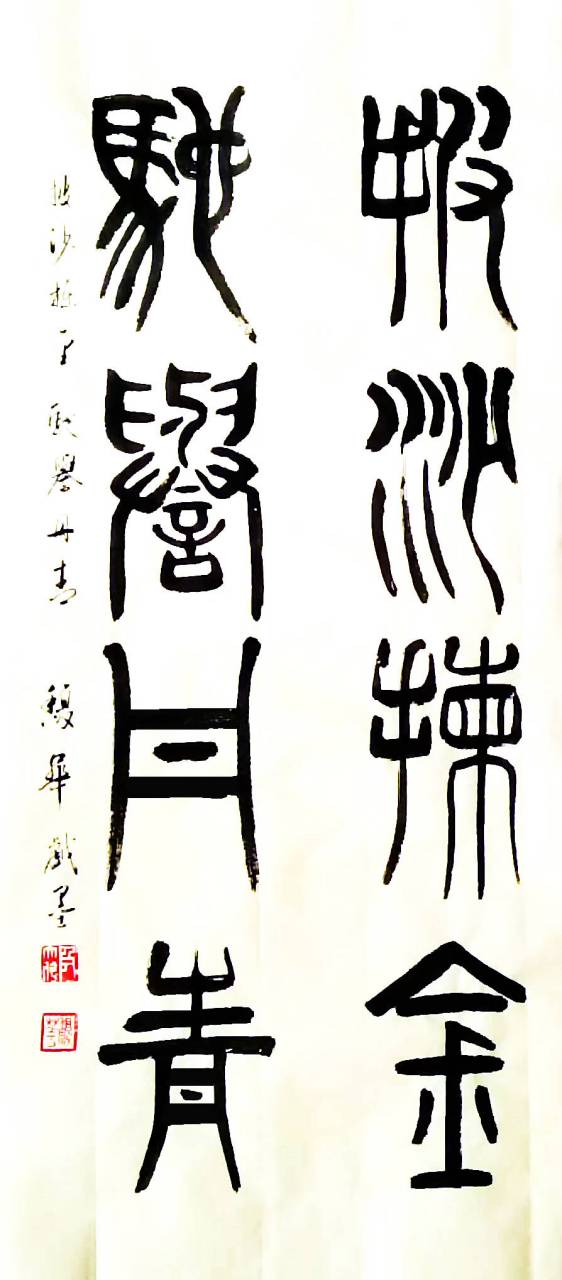 披沙揀金
馳譽丹青
披沙揀金 馳譽丹青 華戲墨